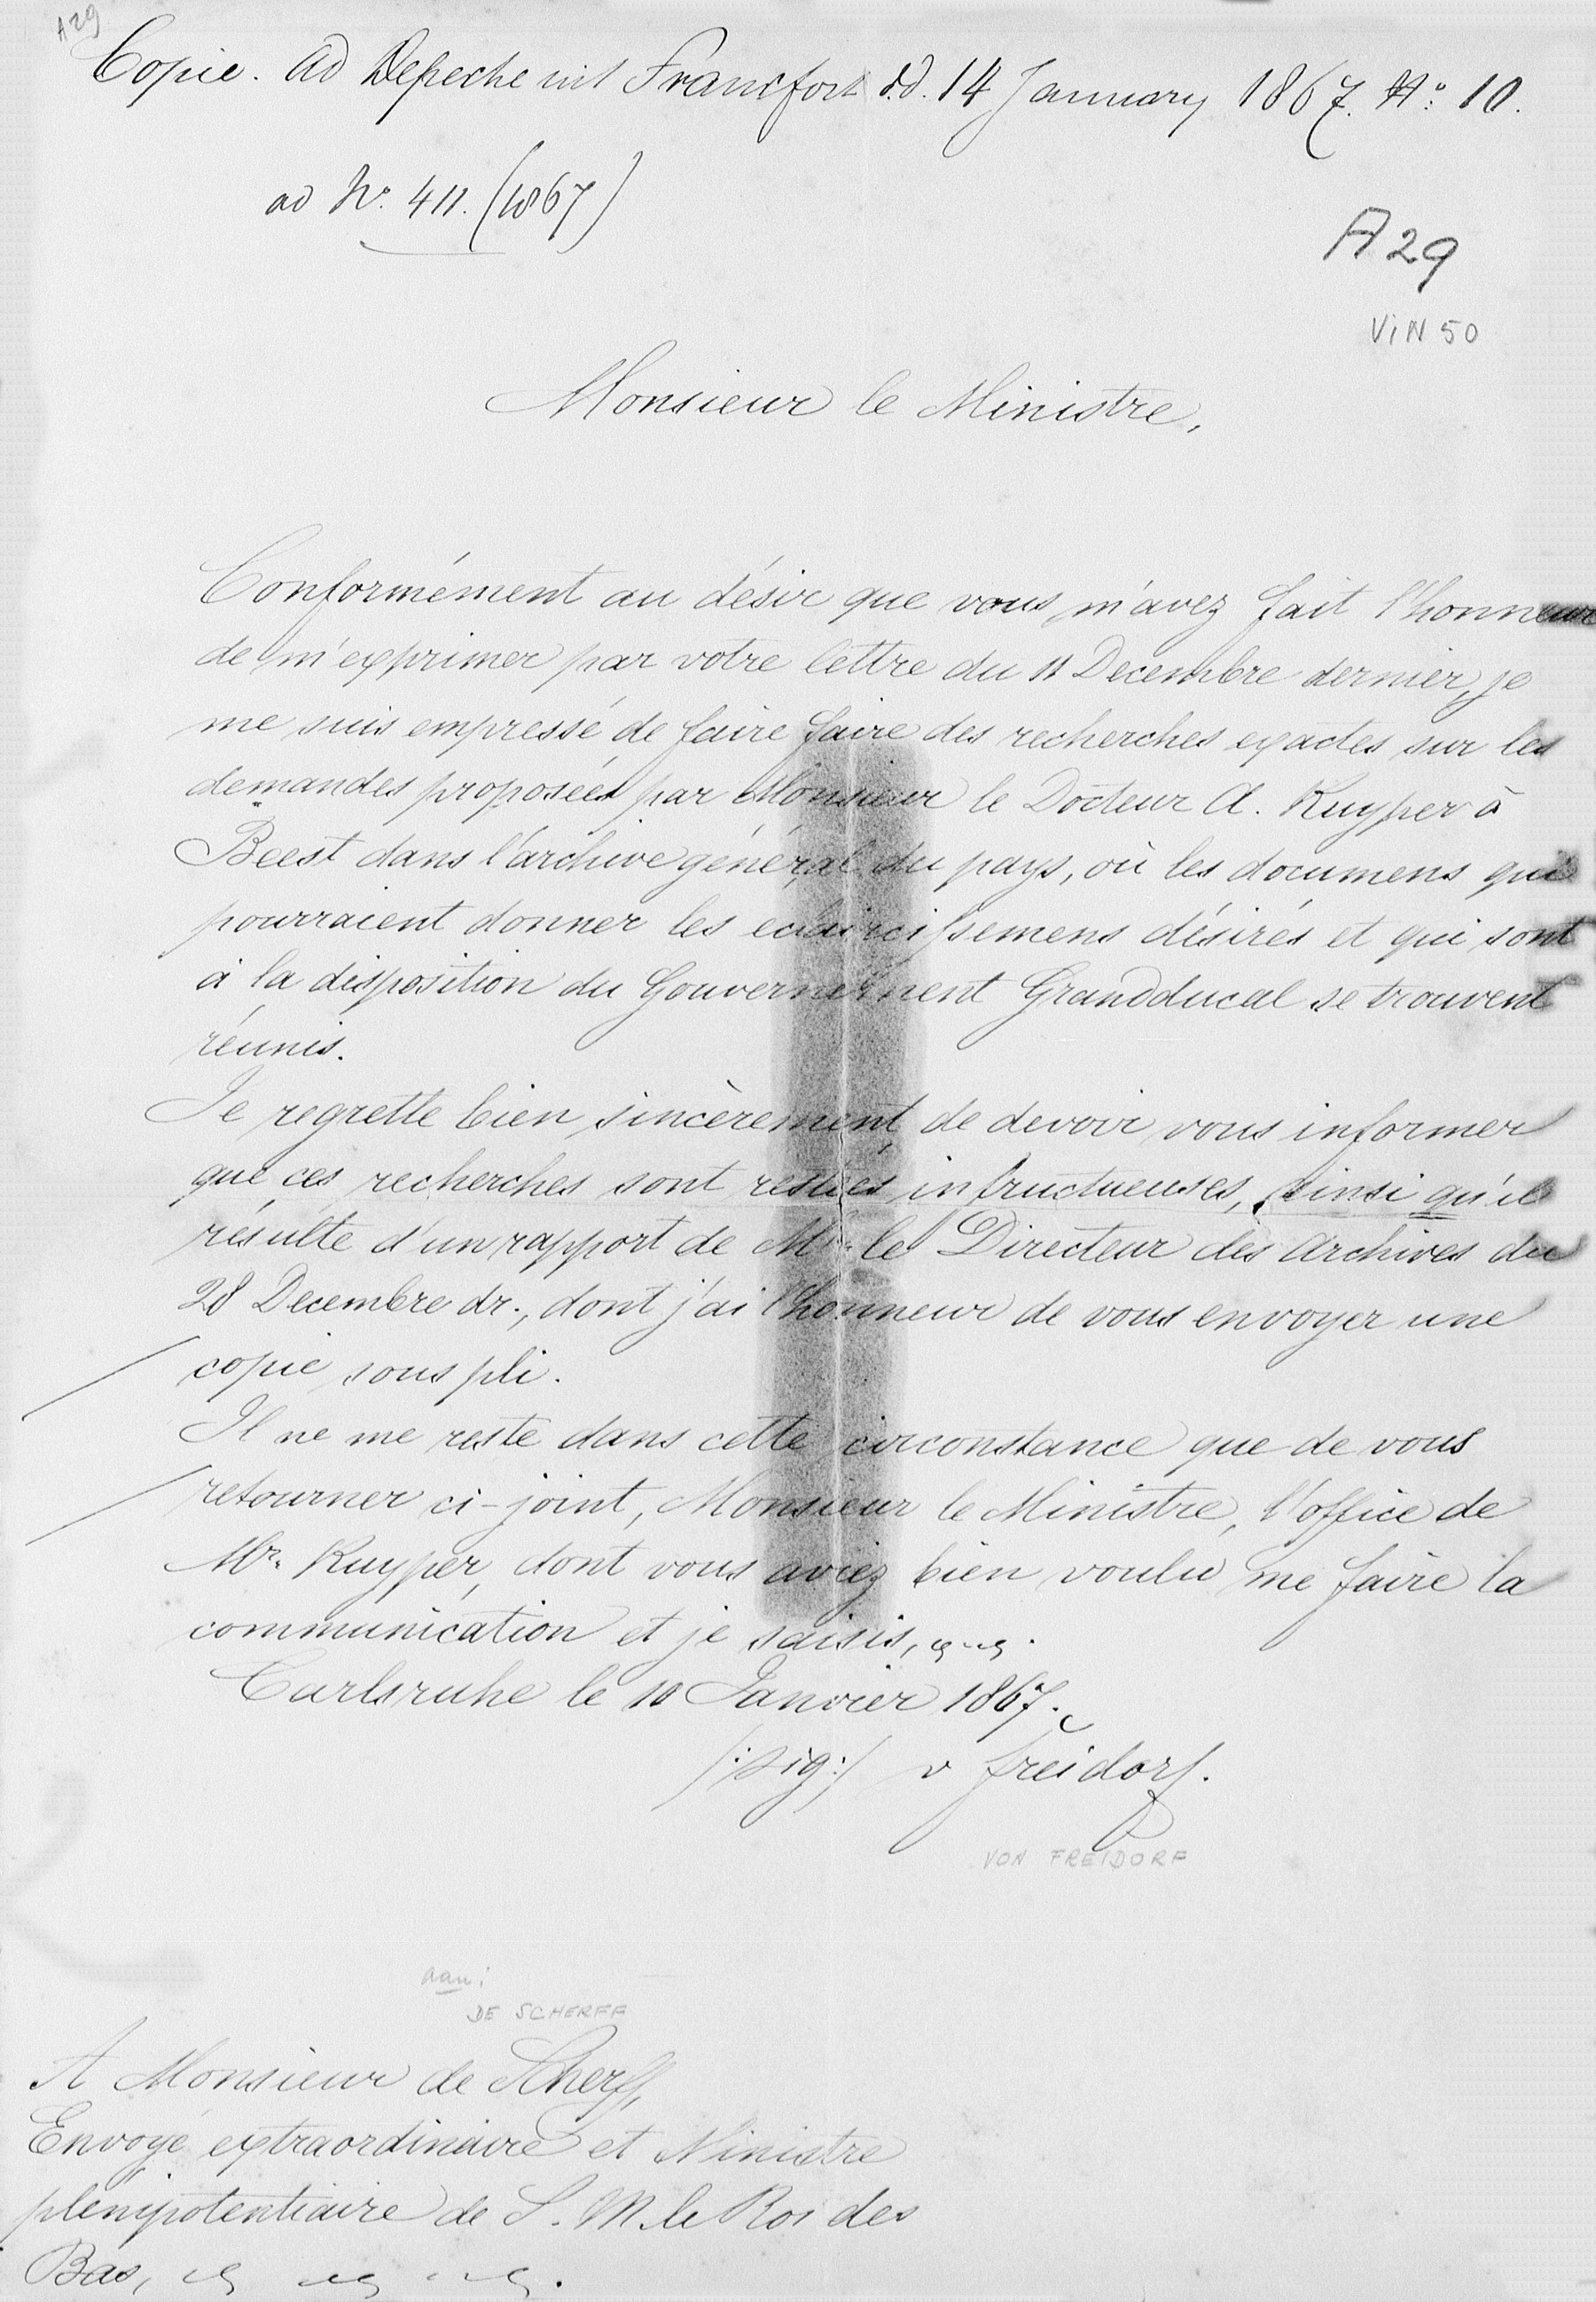 A29
Copie. ad Depeche uit Francfort d.d. 14 January 1867. No: 10.
ad No. 411. (1867)
A 29
ViN 50
Monsieur le Ministre,
Conformément au désir que vous m'avez fait l'honneur
de m'exprimer par votre lettre du 11 Decembre dernier, je
me suis empressé de faire faire des recherches exactes sur les
demandes proposées par Monsieur le Docteur A. Kuyper à
Beest dans l'archive général du pays, où les documens qui
pourraient donner les eclaircissemens désirés et qui sont
à la disposition du Gouvernement Grandducal se trouvent
réunis.
Je regrette bien sincèrement de devoir vous informer
que ces recherches sont restées infructueuses, ainsi qu'il
résulte d'un rapport de Mr. le Directeur des Archives du
28 Decembre dr., dont j'ai l'honneur de vous envoyer une
copie sous pli.
Il ne me reste dans cette circonstance que de vous
retourner ci-joint, Monsieur le Ministre, l'office de
Mr. Kuyper, dont vous aviez bien voulu me faire la
communication et je saisis,
Carlsruhe le 10 Janvier 1867.
/:sig:/ v Freidorf.
VON FREIDORF
aan:
DE SCHERFF
A Monsieur de Scherff,
Envoyé extraordinaire et Ministre
plenipotentiaire de S. M. le Roi des
Bas,